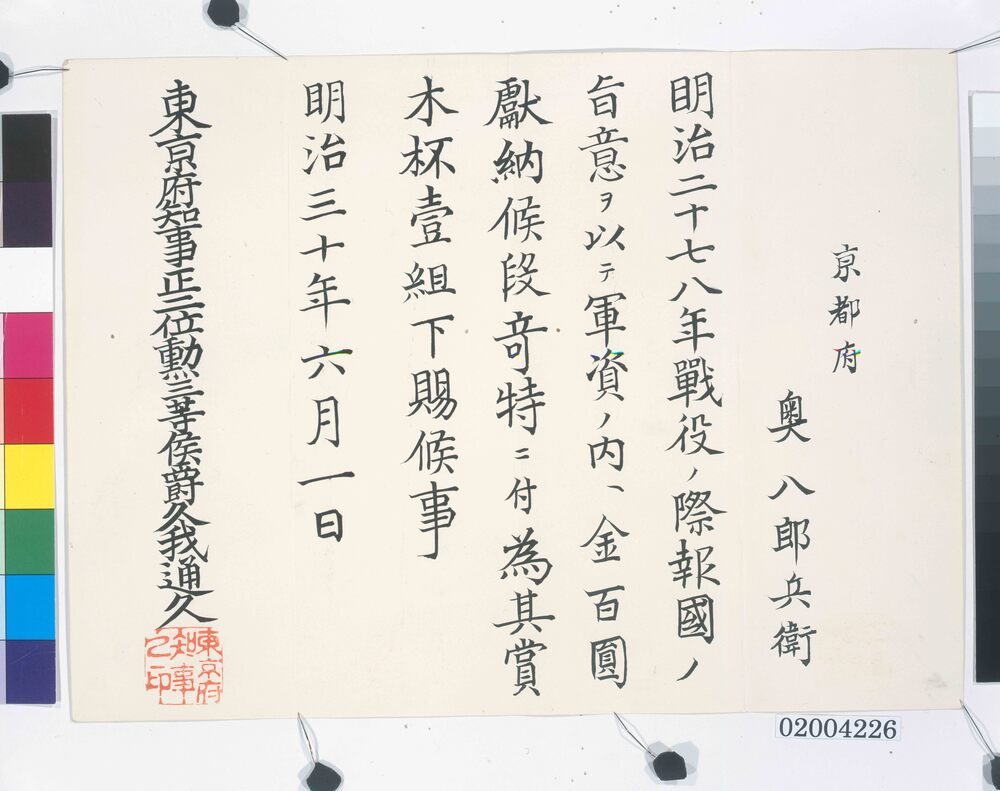 京都府
奥八郎兵衛
明治二十七八年戰役ノ際報國ノ
旨意ヲ以テ軍資ノ内、金百圓
獻納候段竒特ニ付為其賞
木杯壹組下賜候事
明治三十年六月一日
東京府知事正三位勳三等侯爵久我通久
東京府
知事
之印
02004226